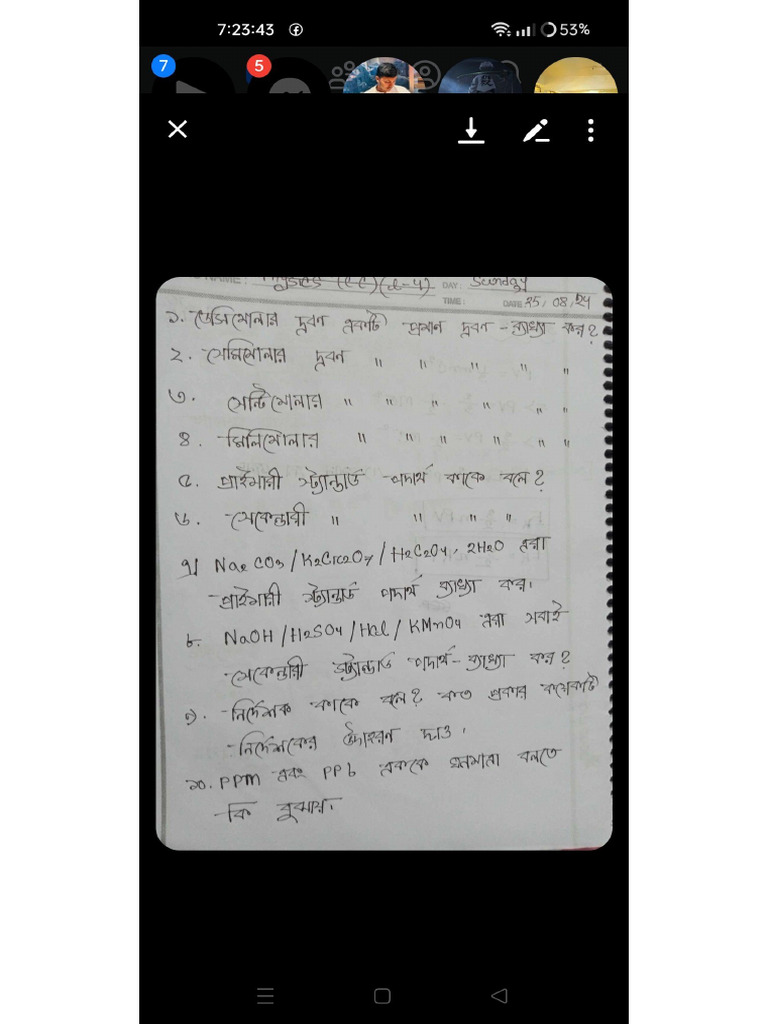 7:23:43
53%
7
5
NAME: Physics (CC) (L-4) DAY: Sunday
TIME: DATE 25/08/24
১. ডেসিমোলার দ্রবণ একটি প্রমাণ দ্রবণ - ব্যাখ্যা কর?
২. সেমিমোলার দ্রবণ " " " " "
৩. সেন্টিমোলার " " " " " "
৪. মিলিমোলার " " " " " "
৫. প্রাইমারী স্ট্যান্ডার্ড পদার্থ কাকে বলে?
৬. সেকেন্ডারী " " " "
৭। Na2CO3/K2Cr2O7/H2C2O4. 2H2O এরা
প্রাইমারী স্ট্যান্ডার্ড পদার্থ ব্যাখ্যা কর।
৮. NaOH/H2SO4/HCl/KMnO4 এরা সবাই
সেকেন্ডারী স্ট্যান্ডার্ড পদার্থ - ব্যাখ্যা কর?
৯. নির্দেশক কাকে বলে? কত প্রকার কয়েকটি
নির্দেশকের উদাহরন দাও।
১০. PPm এবং PPb এককে ঘনমাত্রা বলতে
কি বুঝায়।